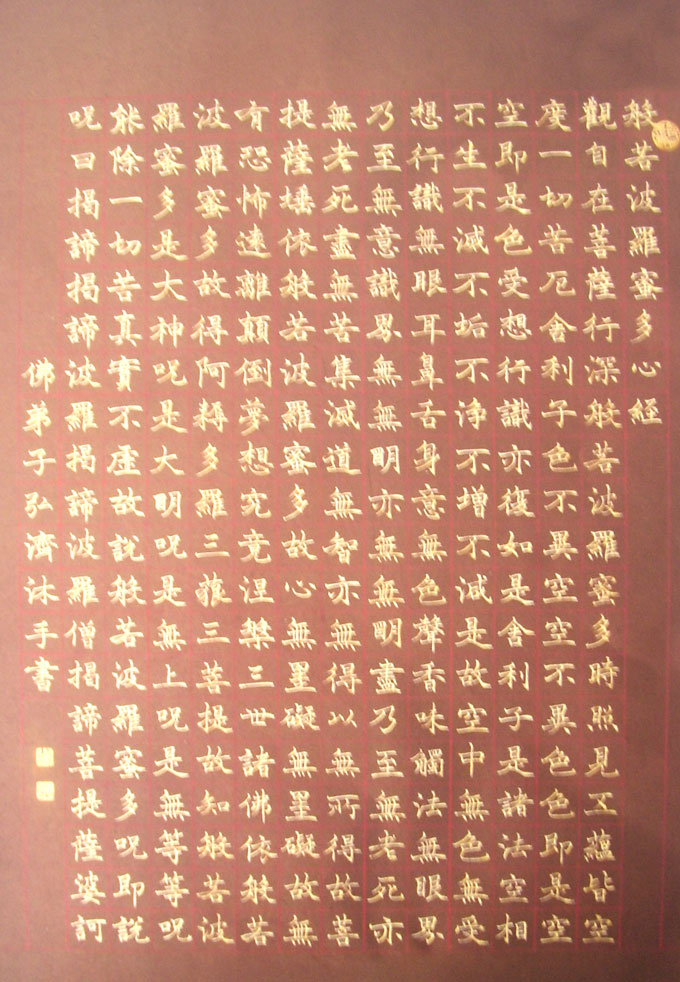 般若波羅蜜多心経
觀自在菩薩行深般若波羅蜜多時照見五蘊皆空
度一切苦厄舍利子色不異空空不異色色即是空
空即是色受想行識亦復如是舍利子是諸法空相
不生不滅不垢不浄不增不減是故空中無色無受
想行識無眼耳鼻舌身意無色聲香味觸法無眼界
乃至無意識界無無明亦無無明盡乃至無老死亦
無老死盡無苦集滅道無智亦無得以無所得故菩
提薩埵依般若波羅蜜多故心無罣礙無罣礙故無
有恐怖遠離顛倒夢想究竟涅槃三世諸佛依般若
波羅蜜多故得阿耨多羅三藐三菩提故知般若波
羅蜜多是大神呪是大明呪是無上呪是無等等呪
能除一切苦真實不虛故說般若波羅蜜多呪即說
呪曰揭諦揭諦波羅揭諦波羅僧揭諦菩提薩婆訶
佛弟子弘濟沐手書